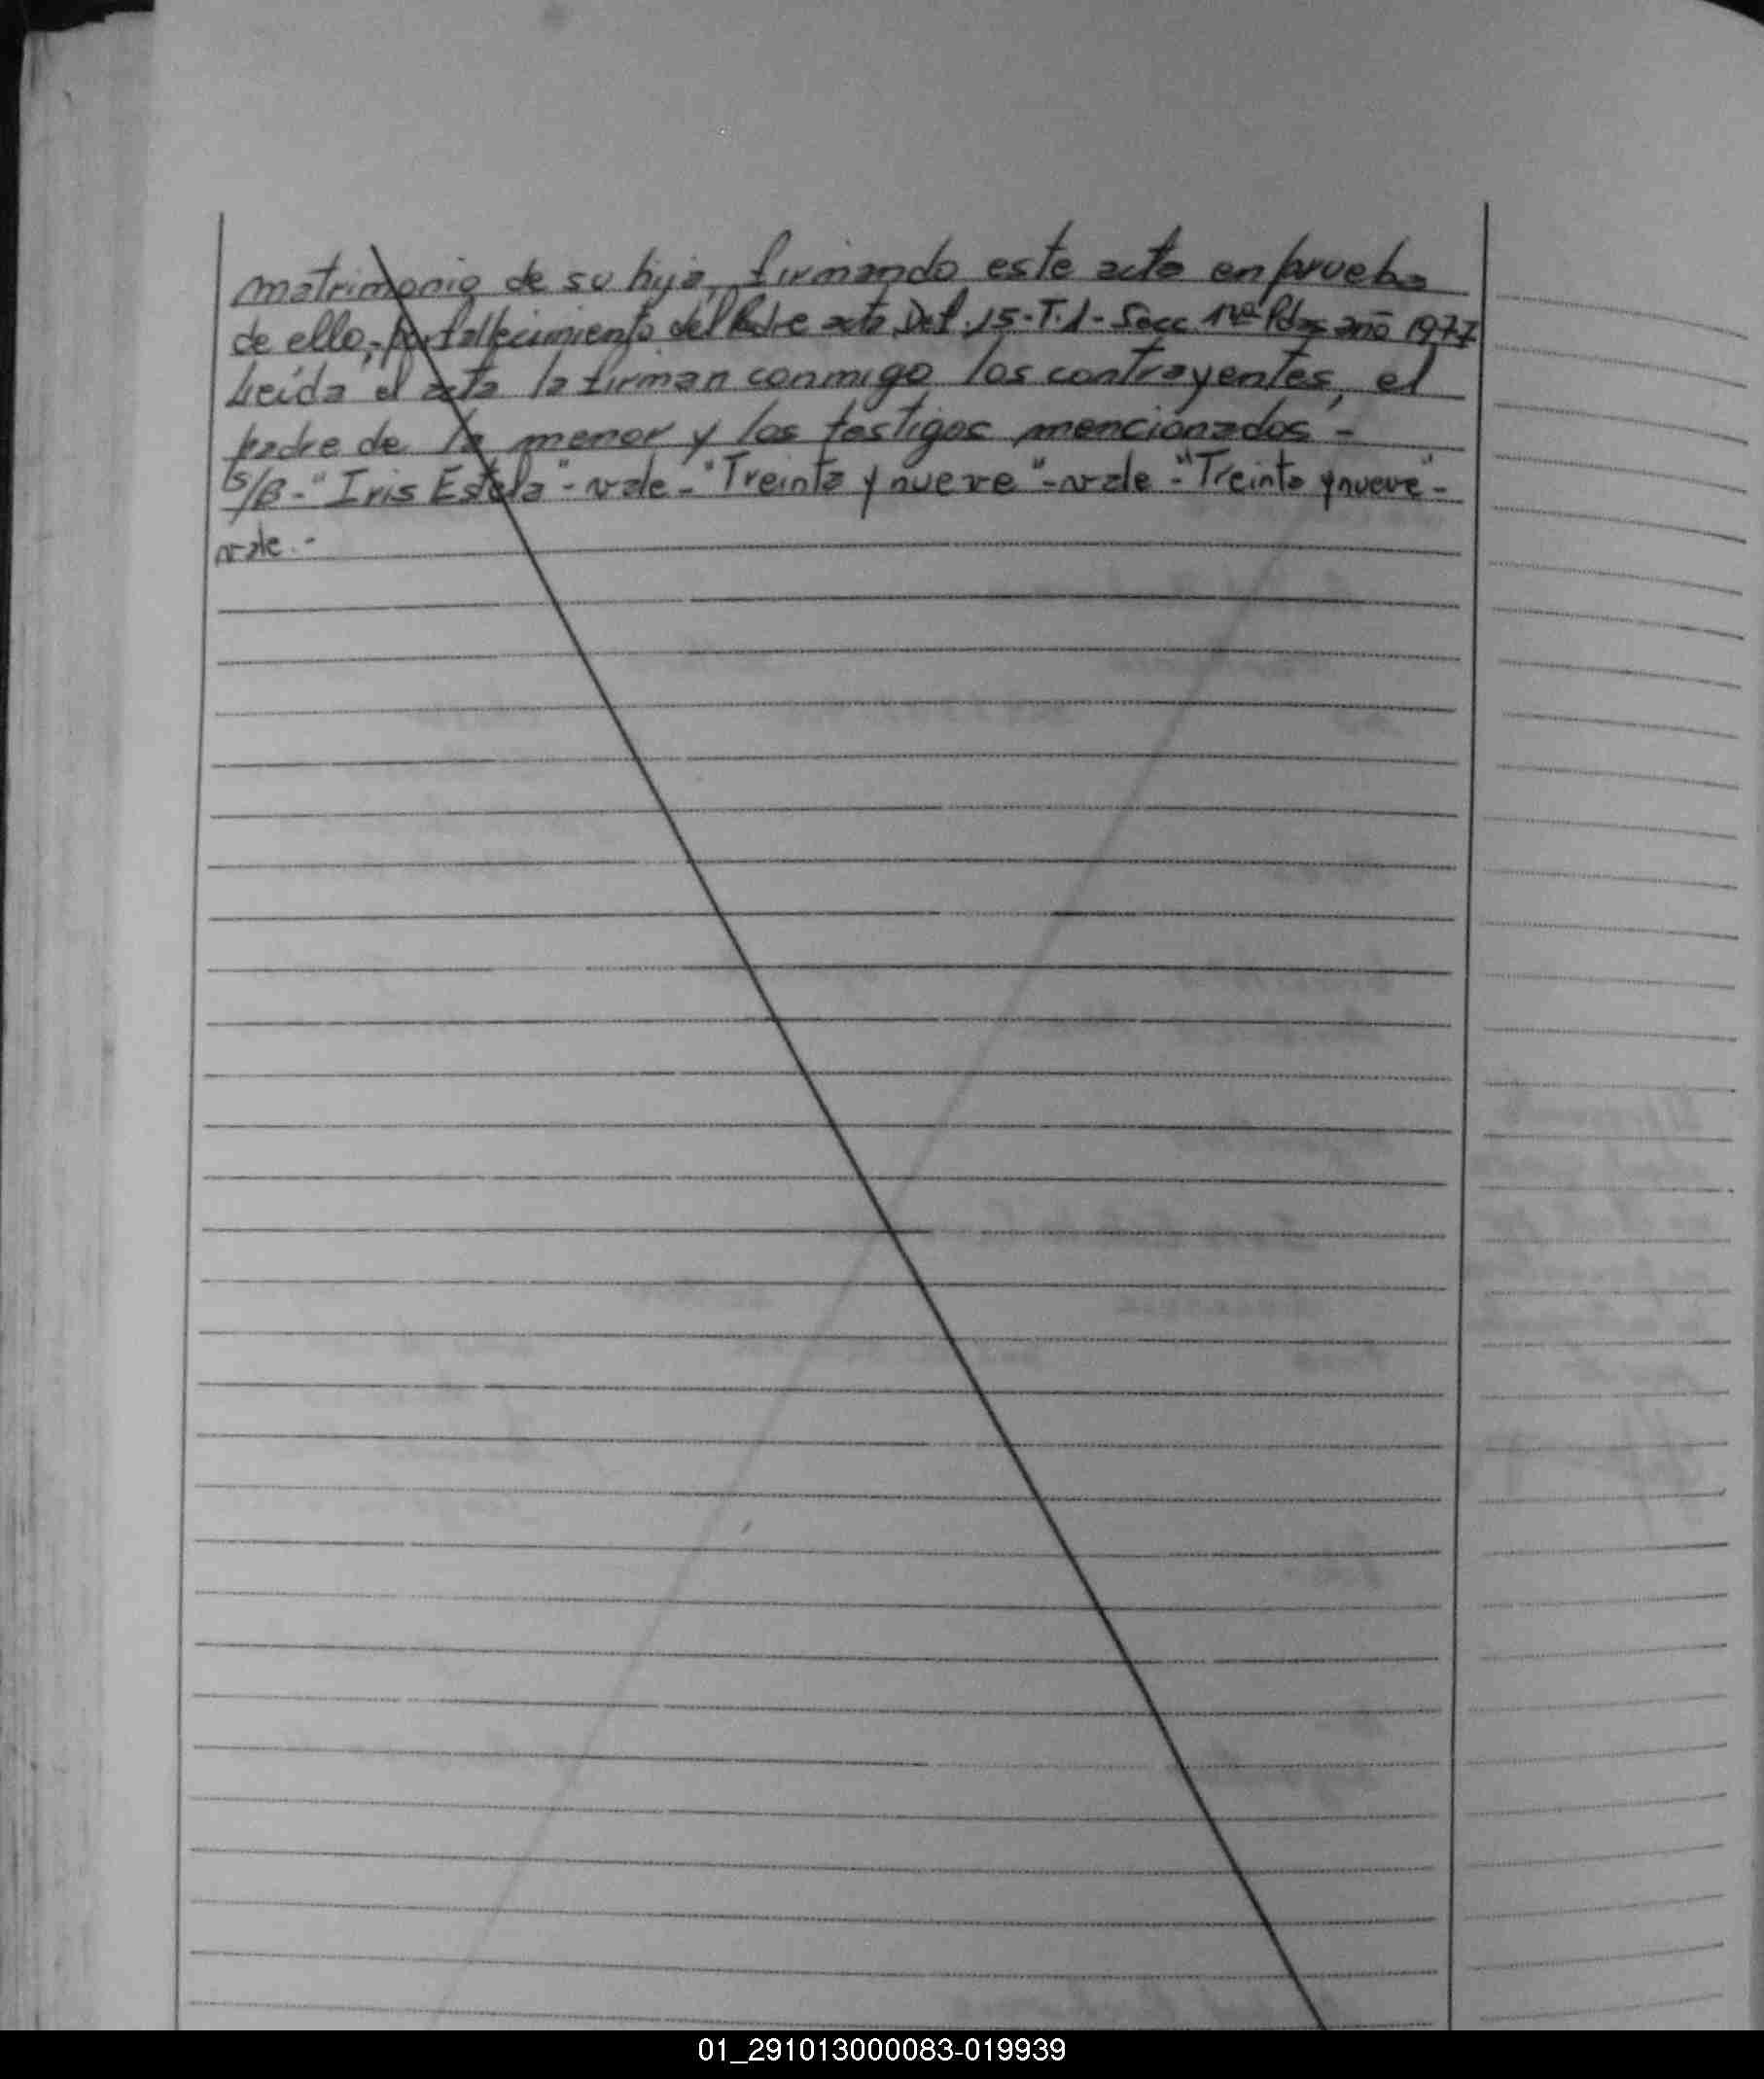 matrimonio de su hija, firmando este acto en prueba
de ello,- por fallecimiento del Padre acta Def. 15-T.1- Secc 1ra Pdas año 1977
Leída el acta la firman conmigo los contrayentes, el
padre de la menor y los testigos mencionados.-
S/B-"Iris Estela"-vale-"Treinta y nueve"-vale-"Treinta y nueve"-
vale.-
01_291013000083-019939